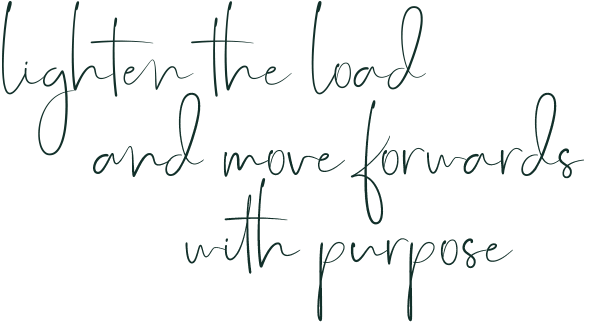 lighten the load
and move forwards
with purpose